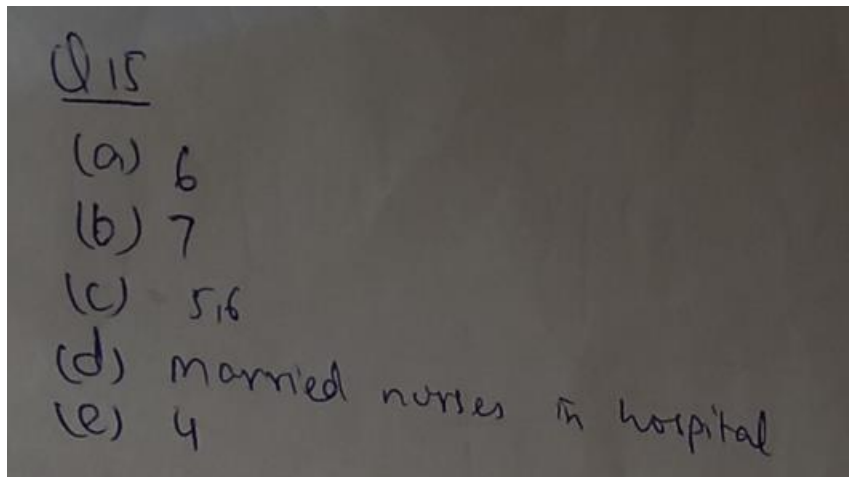 Q 15
(a) 6
(b) 7
(c) 5,6
(d) married nurses in hospital
(e) 4